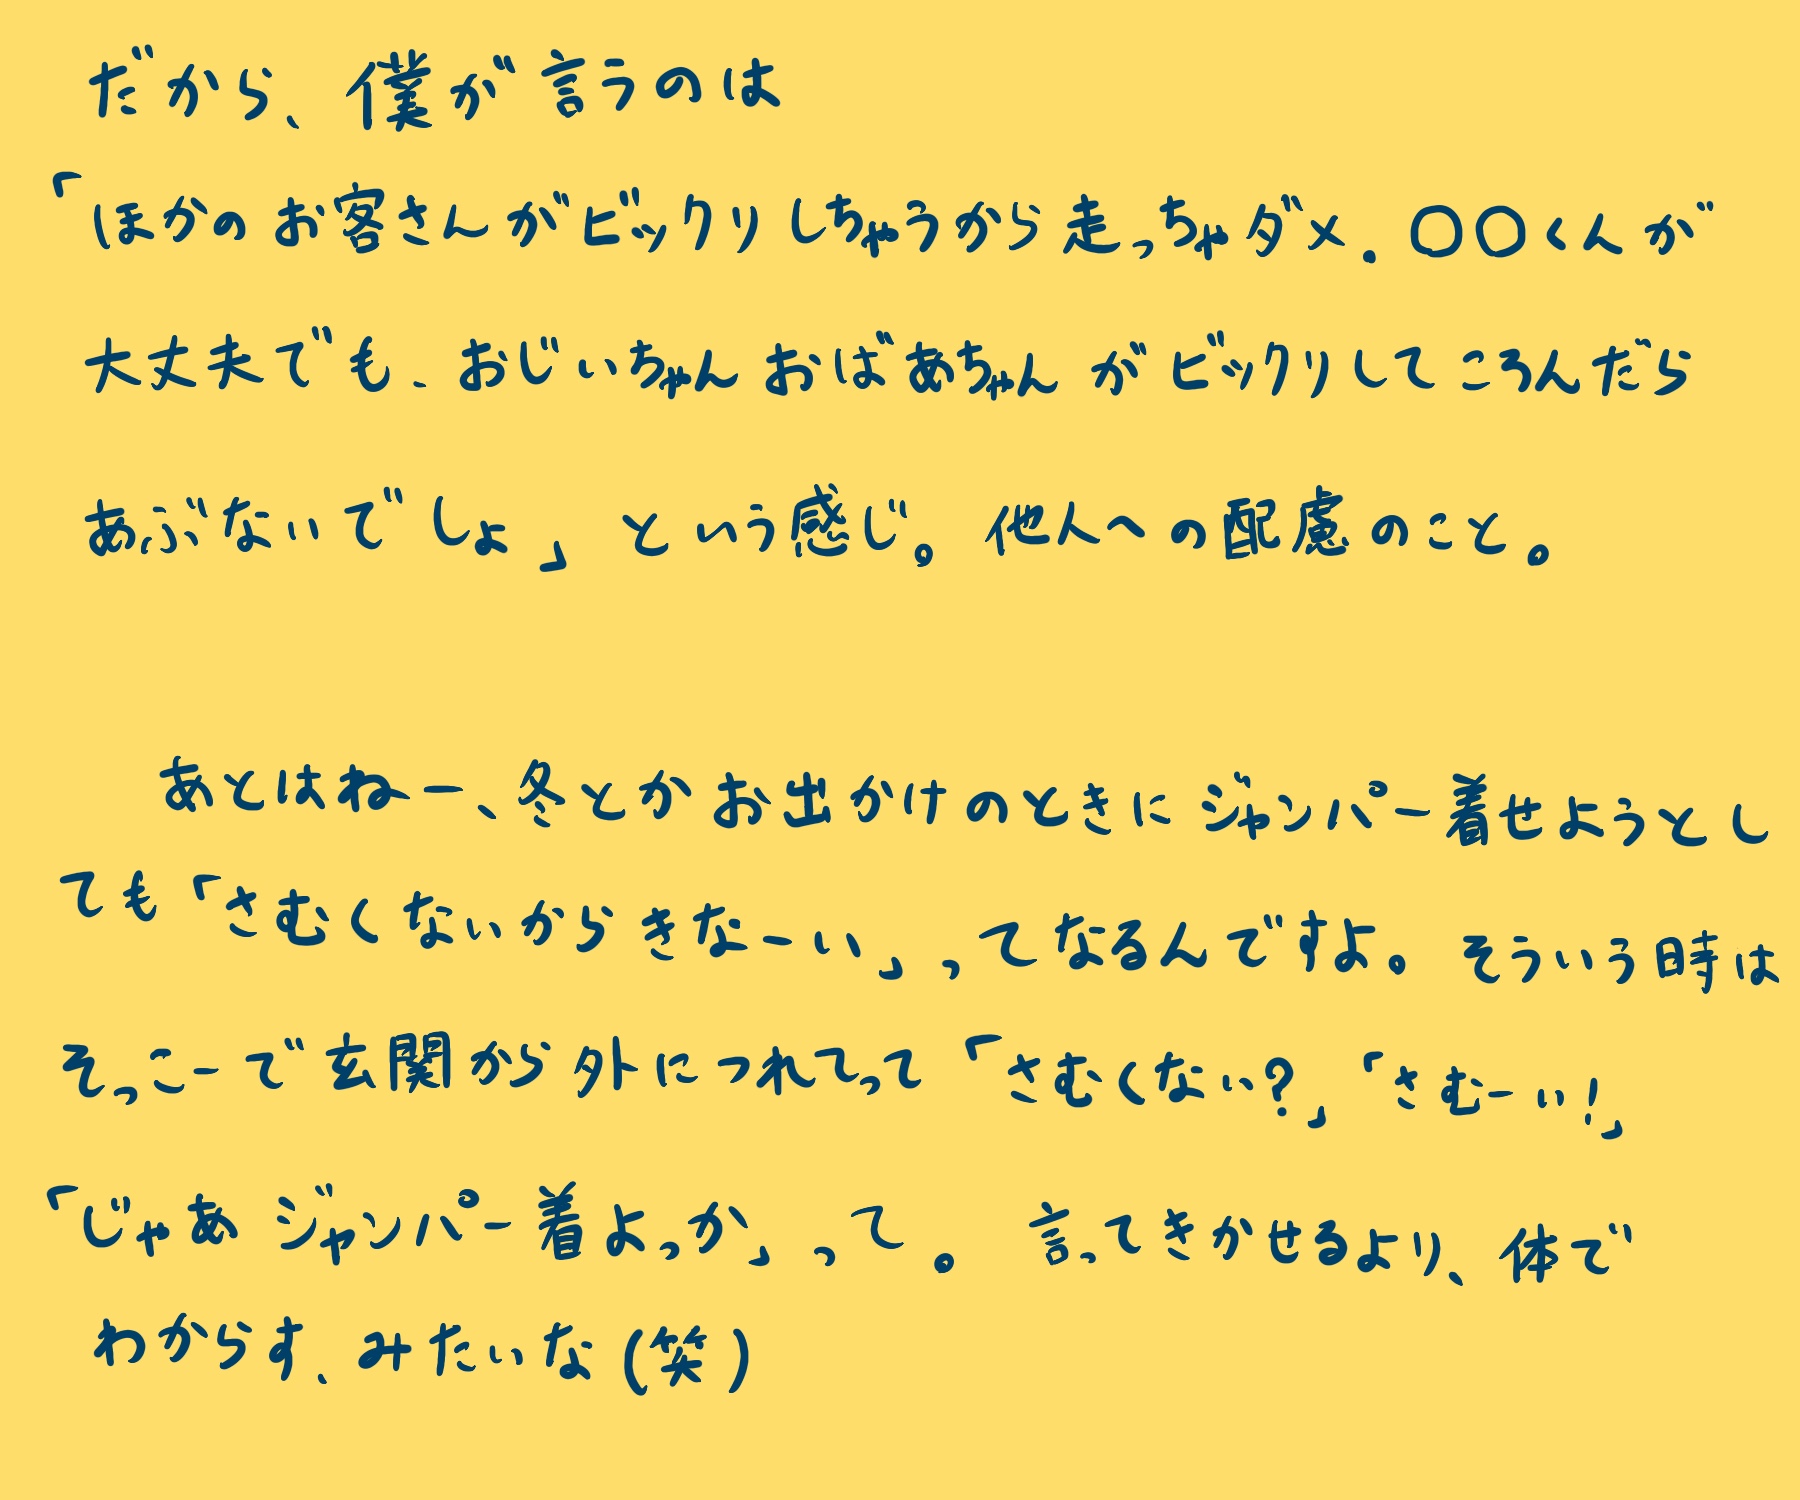 だから、僕が言うのは
「ほかのお客さんがビックリしちゃうから走っちゃダメ.〇〇くんが
大丈夫でも、おじいちゃんおばあちゃんがビックリしてころんだら
あぶないでしょ」という感じ。他人への配慮のこと。
あとはねー、冬とかお出かけのときにジャンパー着せようとし
ても「さむくないからきなーい」ってなるんですよ。そういう時は
そっこーで玄関から外につれてって「さむくない?」「さむーい!」
「じゃあジャンパー着よっか」って。言ってきかせるより、体で
わからす、みたいな(笑)